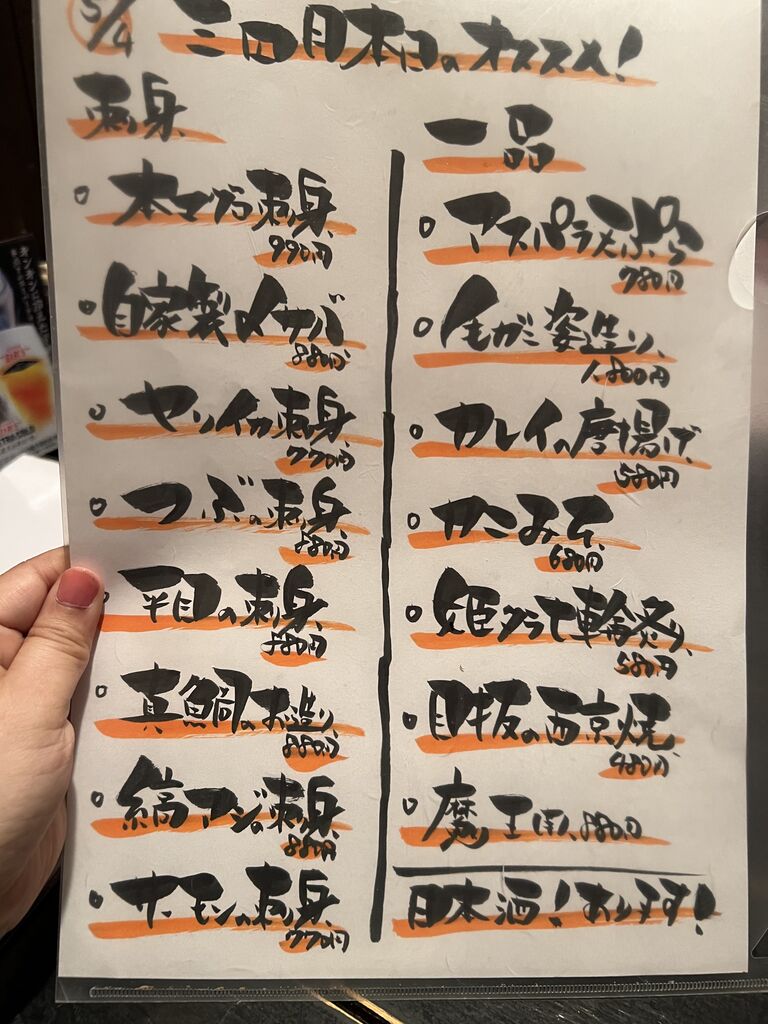 5/4
三四目本日のオススメ!
刺身
○本マグロ刺身
990円
○自家製〆サバ
880円
○ヤリイカ刺身
770円
○つぶの刺身
880円
○平目の刺身
880円
○真鯛のお造り
880円
○縞アジの刺身
880円
○サーモンの刺身
770円
一品
○アスパラ天ぷら
780円
○毛ガニ姿造り
1,800円
○カレイの唐揚げ
580円
○かにみそ
680円
○姫グラモ輪炙り
580円
○目板の西京焼
480円
○魔王 880円
日本酒!あります!